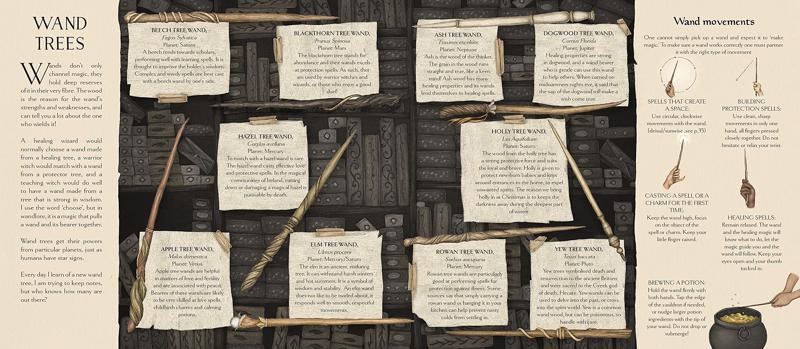 WAND
TREES
Wands don't only
channel magic, they
hold deep reserves
of it in their very fibre. The wood
is the reason for the wand's
strengths and weaknesses, and
can tell you a lot about the one
who wields it!
A healing wizard would
normally choose a wand made
from a healing tree, a warrior
witch would match with a wand
from a protector tree, and a
teaching witch would do well
to have a wand made from a
tree that is strong in wisdom.
I use the word 'choose', but in
wandlore, it is a magic that pulls
a wand and its bearer together.
Wand trees get their powers
from particular planets, just as
humans have star signs.
Every day I learn of a new wand
tree, I am trying to keep notes,
but who knows how many are
out there?
BEECH TREE WAND,
Fagus Sylvatica
Planet: Saturn
A beech tends towards scholars,
performing well with learning spells. It is
thought to improve the holder's wisdom.
Complex and wordy spells are best cast
with a beech wand by one's side.
BLACKTHORN TREE WAND,
Prunus Spinosa
Planet: Mars
The blackthorn tree stands for
abundance and their wands excel
at protection spells. As such, they
are used by warrior witches and
wizards, or those who need a good
duel!
ASH TREE WAND,
Fraxinus excelsior
Planet: Neptune
Ash is the wood of the thinker.
The grain of the wood runs
straight and true, like a keen
mind! Ash wood has many
healing properties and its wands
lend themselves to healing spells.
DOGWOOD TREE WAND,
Cornus Florida
Planet: Jupiter
Healing properties are strong
in dogwood, and a wand bearer
who is gentle can use this wand
to help others. When carried on
midsummer nights eve, it is said that
the sap of the dogwood will make a
wish come true.
HAZEL TREE WAND,
Corylus avellana
Planet: Mercury
To match with a hazel wand is rare.
The hazel wand casts effective love
and protection spells. In the magical
communities of Ireland, cutting
down or damaging a magical hazel is
punishable by death.
HOLLY TREE WAND,
Ilex Aquifolium
Planet: Saturn
The wood from the holly tree has
a strong protective force and suits
the loyal and brave. Holly is given to
protect newborn babies and kept
around entrances to the home, to repel
unwanted spirits. The reason we bring
holly in at Christmas is to keep the
darkness away during the deepest part
of winter.
APPLE TREE WAND,
Malus domestica
Planet: Venus
Apple tree wands are helpful
in matters of love and fertility
and are associated with peace.
Bearers of these wands are likely
to be very skilled at love spells,
childbirth charms and calming
potions.
ELM TREE WAND,
Ulmus procera
Planet: Mercury/Saturn
The elm is an ancient, enduring
tree. It can withstand harsh winters
and hot summers. It is a symbol of
wisdom and stability. An elm wand
does not like to be waved about, it
responds well to smooth, respectful
movements.
ROWAN TREE WAND,
Sorbus aucuparia
Planet: Mercury
Rowan tree wands are particularly
good at performing spells for
protection against illness. Some
sources say that simply carrying a
rowan wand or hanging it in your
kitchen can help prevent nasty
colds from settling in.
YEW TREE WAND,
Taxus baccata
Planet: Pluto
Yew trees symbolised death and
resurrection to the ancient Britons
and were sacred to the Greek god
of death, Hecate. Yew wands can be
used to delve into the past, or cross
into the spirit world. Yew is a common
wand wood, but can be poisonous, so
handle with care.
Wand movements
One cannot simply pick up a wand and expect it to 'make
magic.' To make sure a wand works correctly one must partner
it with the right movement.
SPELLS THAT CREATE
A SPACE:
Use circular, clockwise
movements with the wand.
BUILDING
PROTECTION SPELLS:
Use clean, sharp
movements in only one
hand, all fingers pressed
closely together. Do not
hesitate or relax your wrist.
CASTING A SPELL OR A
CHARM FOR THE FIRST
TIME:
Keep the wand high, focus
on the object of the
spell or charm. Keep your
little finger raised.
HEALING SPELLS:
Remain relaxed. The wand
and the healing magic will
know what to do, let the
magic guide you and the
wand will follow. Keep your
eyes open and your thumb
tucked in.
BREWING A POTION:
Hold the wand firmly with
both hands. Tap the edge
of the cauldron if needed,
or nudge larger potion
ingredients with the tip of
your wand. Do not drop or
submerge!